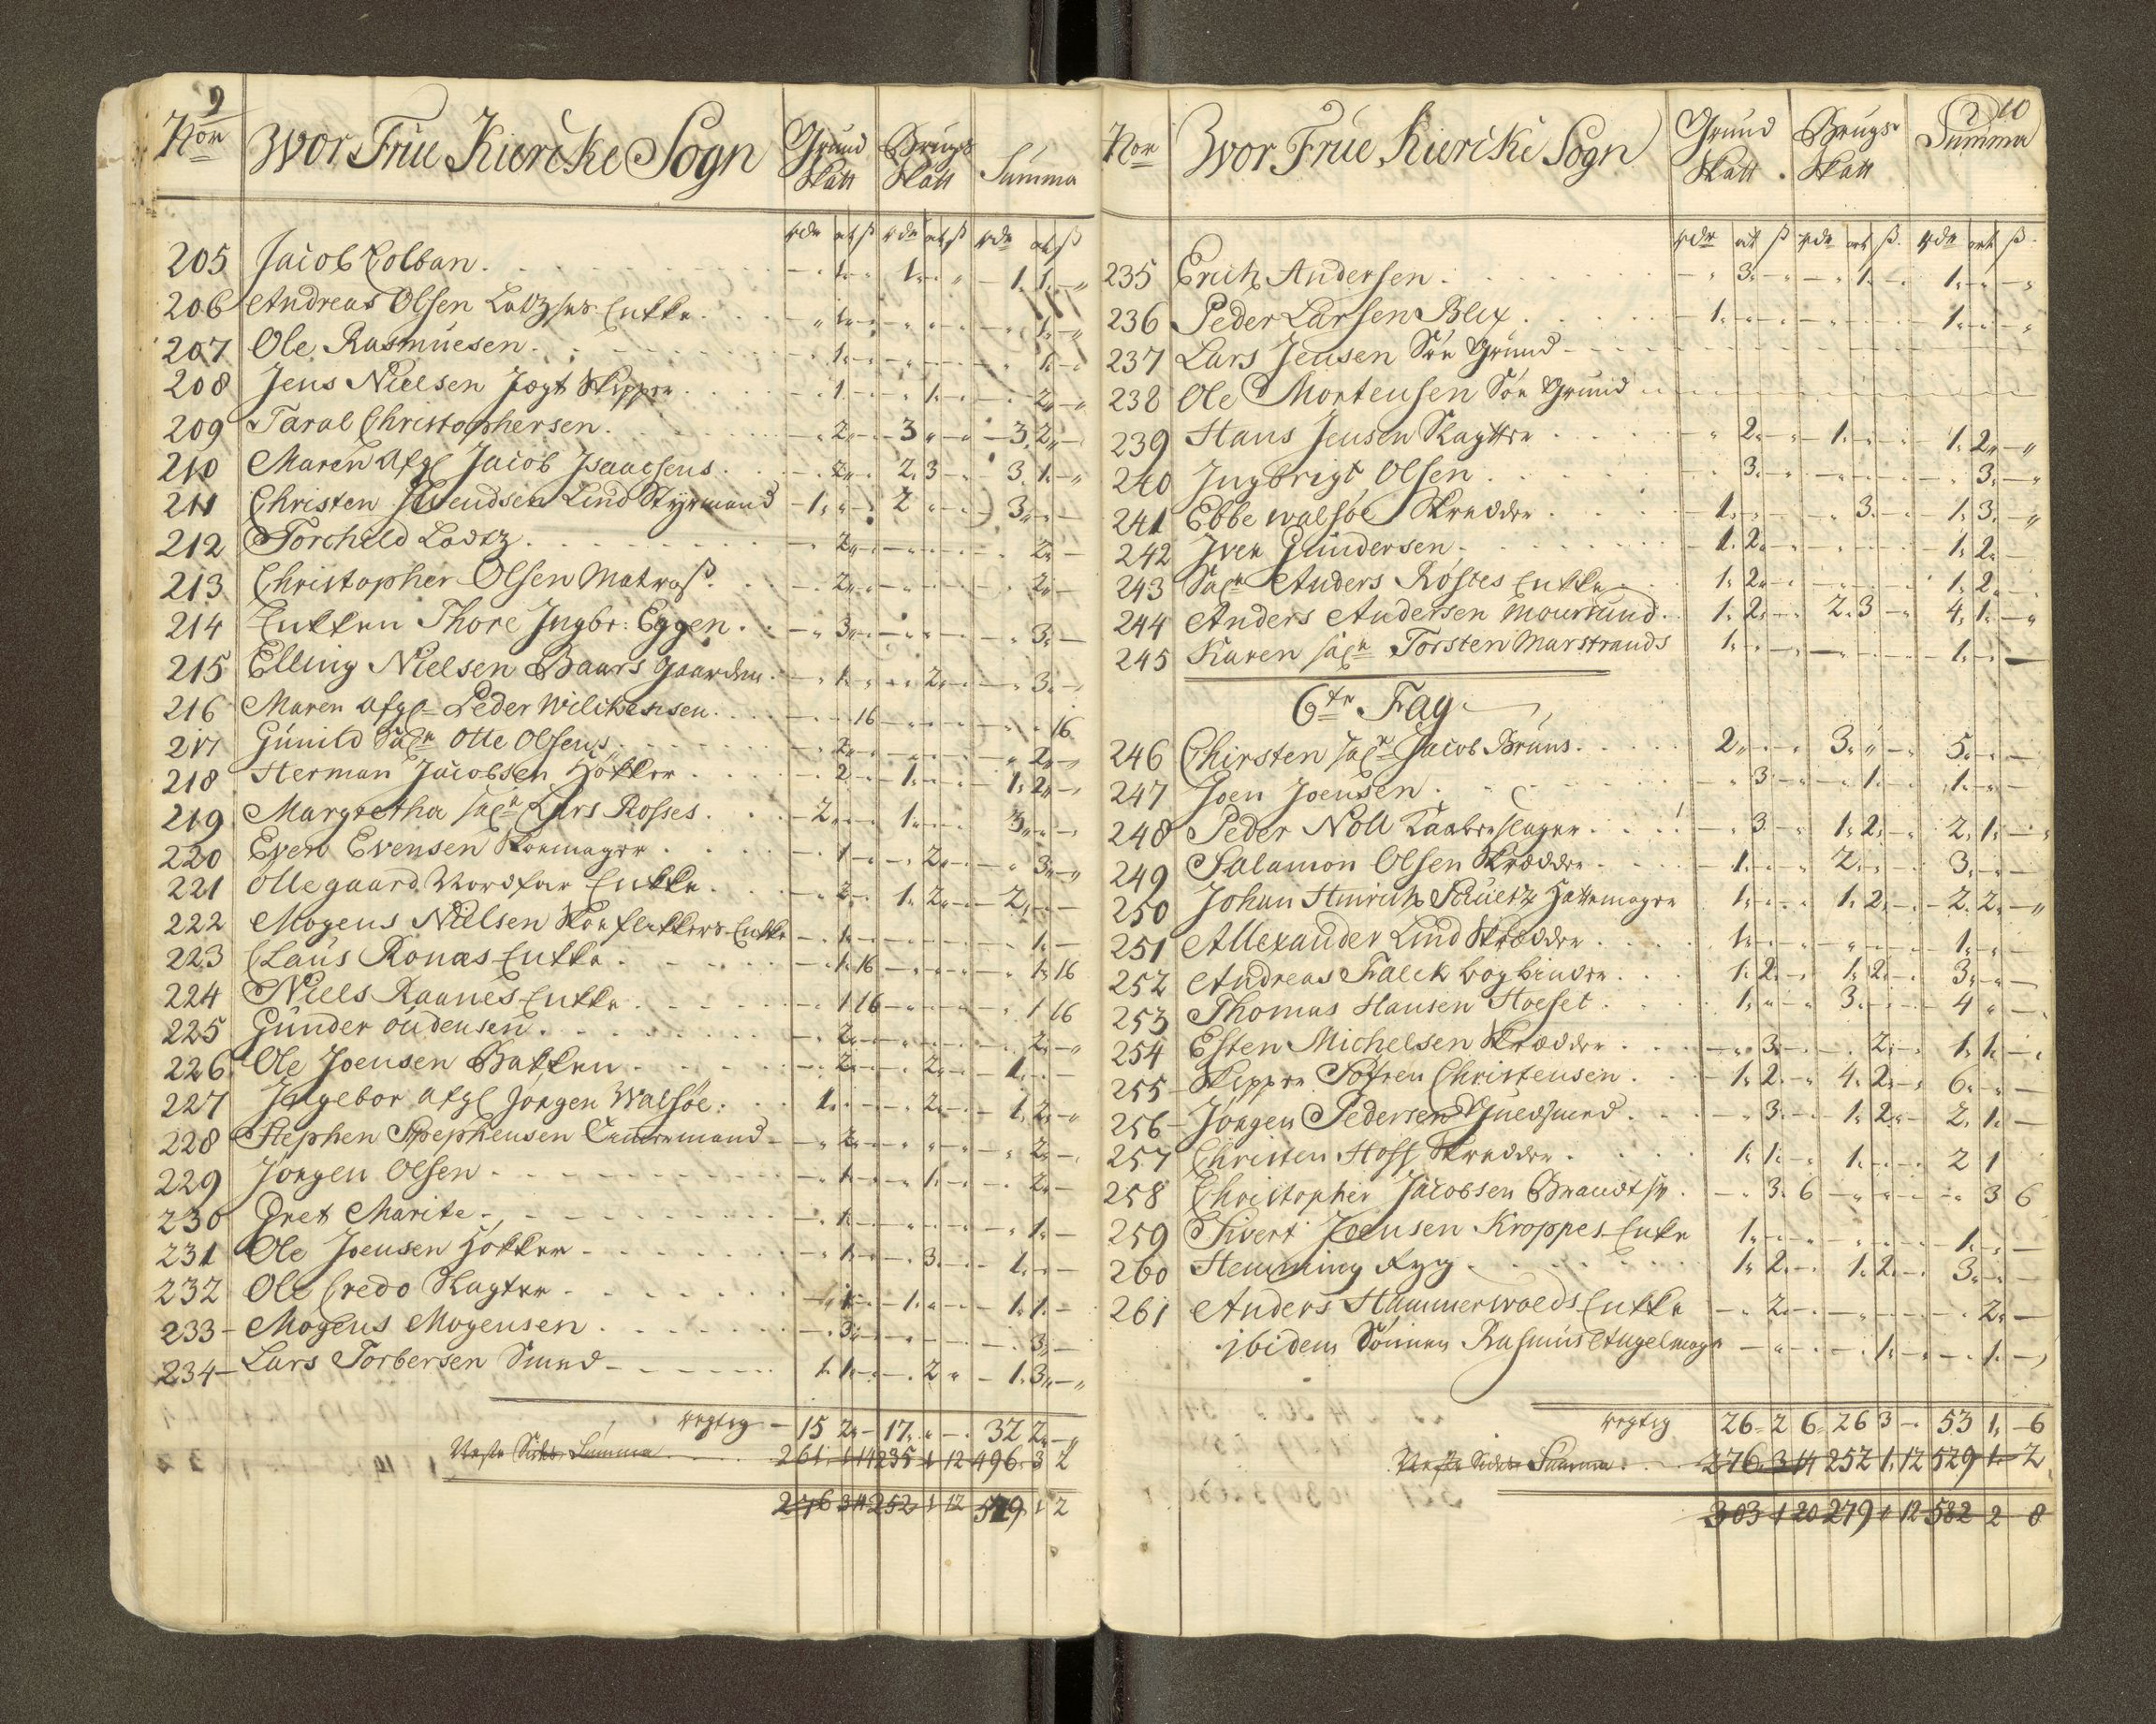 9
Nor Wor Frue Kiercke Sogn Grund Skatt Brugs Skatt Summa
rdr ort ß rdr ort ß rdr ort ß
205 Jacob Colban 1 1 1 1
206 Andreas Olsen Enke 1 1
207 Ole Rasmuesen 1 1
208 Jens Nielsen Jægt Skipper 1 1 2
209 Taral Christophersen 2 3 3 2
210 Maren Afgl Jacob Isaacsens 2 2 3 3 1
211 Christen Svendsen Lind Styrmand 1 2 3
212 Torchild Lodtz 2 2
213 Christopher Olsen Matroß 2 2
214 Enken Thore Ingbr: Eggen 3 3
215 Elling Nielsen Baars gaarden 1 2 3
216 Maren Afgl Peder Wilchensen 16 16
217 Gunild Sal Otte Olsens 2 2
218 Herman Jacobsen Høker 2 1 1 2
219 Margretha sal Lars Rosses 2 1 3
220 Even Evensen Skomager 1 2 3
221 Ollegaard Nordfar Enke 2 1 2 2
222 Mogens Nielsen Skoeflikkers Enke 1 1
223 Claus Ronæs Enke 1 16 1 16
224 Niels Raanes Enke 1 16 1 16
225 Gunder oudensen 2 2
226 Ole Joensen Bakken 2 2 1
227 Ingebor Afgl Jørgen Walsøe 1 2 1 2
228 Stephen Stephensen Tømermand 2 2
229 Jørgen Olsen 1 1 2
230 Gret Marite 1 1
231 Ole Joensen Høker 1 3 1
232 Ole Credo Slagter 1 1 1 1
233 Mogens Mogensen 3 3
234 Lars Torbersen Smed 1 1 2 1 3
rigtig 15 2 17 32 2
Neste Sides Summa 261 1 14 235 1 12 496 3 2
276 3 14 252 1 12 529 1 2
10
Nor Wor Frue Kiercke Sogn Grund Skatt Brugs Skatt Summa
rdr ort ß rdr ort ß rdr ort ß
235 Erich Andersen 3 1 1
236 Peder Larsen Blix 1 1
237 Lars Jensen Øde Grund
238 Ole Mortensen Øde Grund
239 Hans Jensen Slagter 2 1 1 2
240 Ingbrigt Olsen 3 3
241 Ebbe Walsøe Skredder 1 3 1 3
242 Iver Gundersen 1 2 1 2
243 Sal Anders Røstes Enke 1 2 1 2
244 Anders Andersen Mourlund 1 2 2 3 4 1
245 Karen sal Torsten Marstrands 1 1
6te Fag
246 Chirsten sal Jacob Bruns 2 3 5
247 Joen Joensen 3 1 1
248 Peder Noll Kaaberslager 3 1 2 2 1
249 Salamon Olsen Skrædder 1 2 3
250 Johan Hinrich Schultz Hattemager 1 1 2 2 2
251 Allexander Lind Skrædder 1 1
252 Andreas Falck bogbinder 1 2 1 2 3
253 Thomas Hansen Hoeset 1 3 4
254 Esten Michelsen Skrædder 3 2 1 1
255 Skipper Søfren Christensen 1 2 4 2 6
256 Jørgen Pedersen Guldsmed 3 1 2 2 1
257 Christen Hoff Skredder 1 1 1 2 1
258 Christopher Jacobsen Brandt 3 6 3 6
259 Sivert Joensen Kroppes Enke 1 1
260 Hemming Ryg 1 2 1 2 3
261 Anders Hammerwolds Enke 2 2
ibidem Sønnen Rasmus Angelmager 1 1
rigtig 26 2 6 26 3 53 1 6
Neste Sides Summa 276 3 14 252 1 12 529 1 2
303 1 20 279 1 12 582 2 8